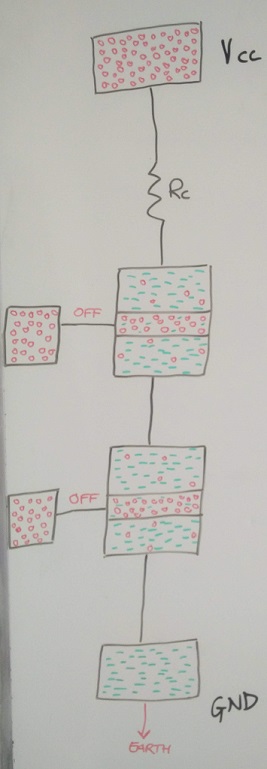 Vcc
Rc
OFF
OFF
GND
EARTH